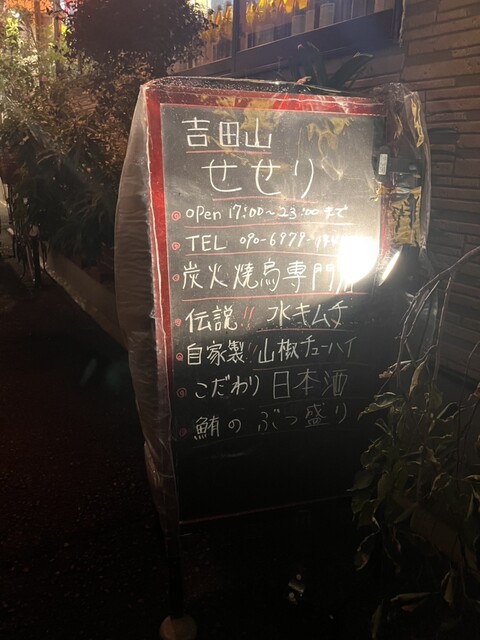 吉田山
せせり
open 17:00～23:00まで
TEL 090-6979-
炭火焼鳥専門
伝説!! 水キムチ
自家製!! 山椒チューハイ
こだわり 日本酒
鮪の ぶつ盛り